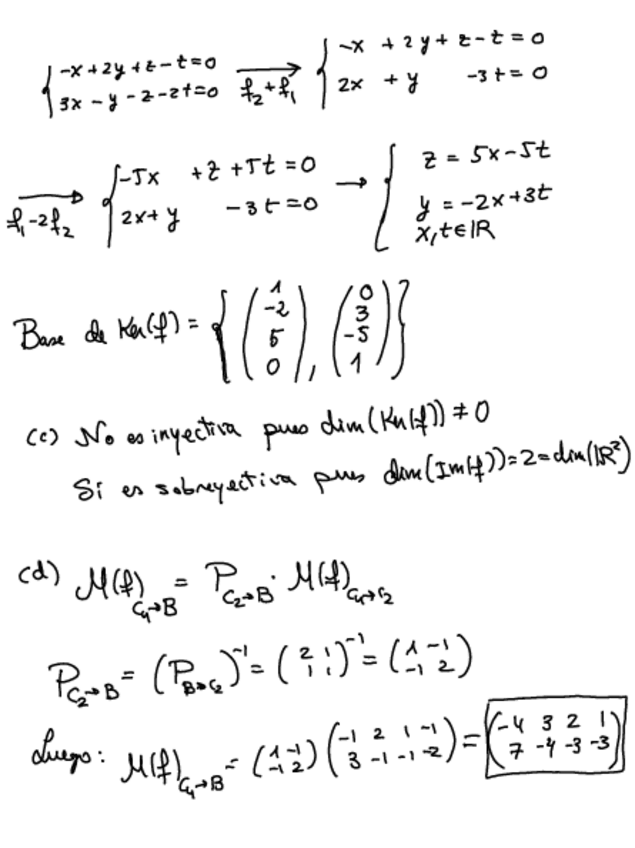 {-x+2y+z-t=0 {-x+2y+z-t=0
{3x-y-z-2t=0 →f₂+f₁ {2x+y -3t=0
→f₁-2f₂ {-5x +z+5t=0 → {z=5x-5t
{2x+y -3t=0 {y=-2x+3t
x,t∈ℝ
Base de Ker(f) = {(1 -2 5 0), (0 3 -5 1)}
(c) No es inyectiva pues dim(Ker(f)) ≠ 0
Sí es sobreyectiva pues dim(Im(f))=2=dim(ℝ²)
(d) M(f)_{C₄→B} = P_{C₂→B} · M(f)_{C₄→C₂}
P_{C₂→B} = (P_{B→C₂})⁻¹ = (2 1; 1 1)⁻¹ = (1 -1; -1 2)
Luego: M(f)_{C₄→B} = (1 -1; -1 2)(-1 2 1 -1; 3 -1 -1 -2) = (-4 3 2 1; 7 -4 -3 -3)